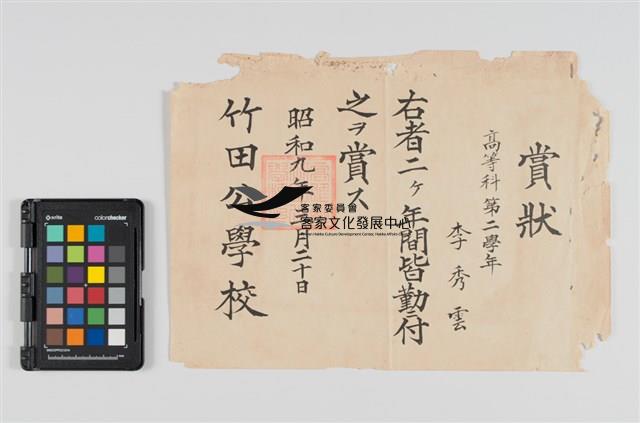 賞狀
高等科第二學年
李秀雲
右者二ヶ年間皆勤ニ付
之ヲ賞ス
昭和九年三月二十日
竹田公學校
客家委員會
客家文化發展中心
Taiwan Hakka Culture Development Center, Hakka Affairs Council
x-rite
colorchecker